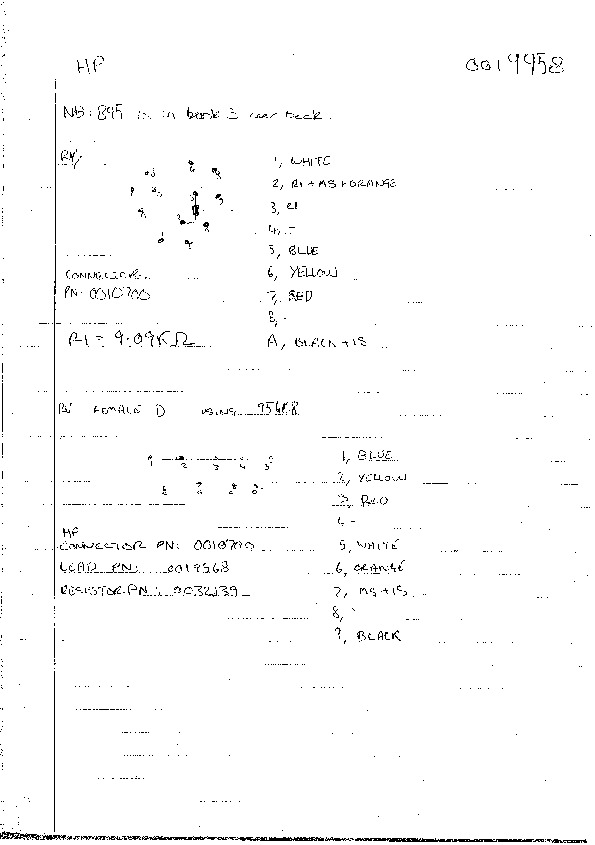 HP
0019958
NB: 895 is in book 3 near back.
1, WHITE
2, R1 + MS + ORANGE
3, R1
4, -
5, BLUE
6, YELLOW
7, RED
8, -
A, BLACK + IS
CONNECTOR
PN: 0010700
R1 = 9.09KΩ
FEMALE D USING
1 2 3 4 5
1, BLUE
2, YELLOW
3, RED
4 -
5, WHITE
6, ORANGE
7, MS + IS
8, -
9, BLACK
HP
CONNECTOR PN: 0010700
LEAD PN: 0019568
RESISTOR PN: 0032139